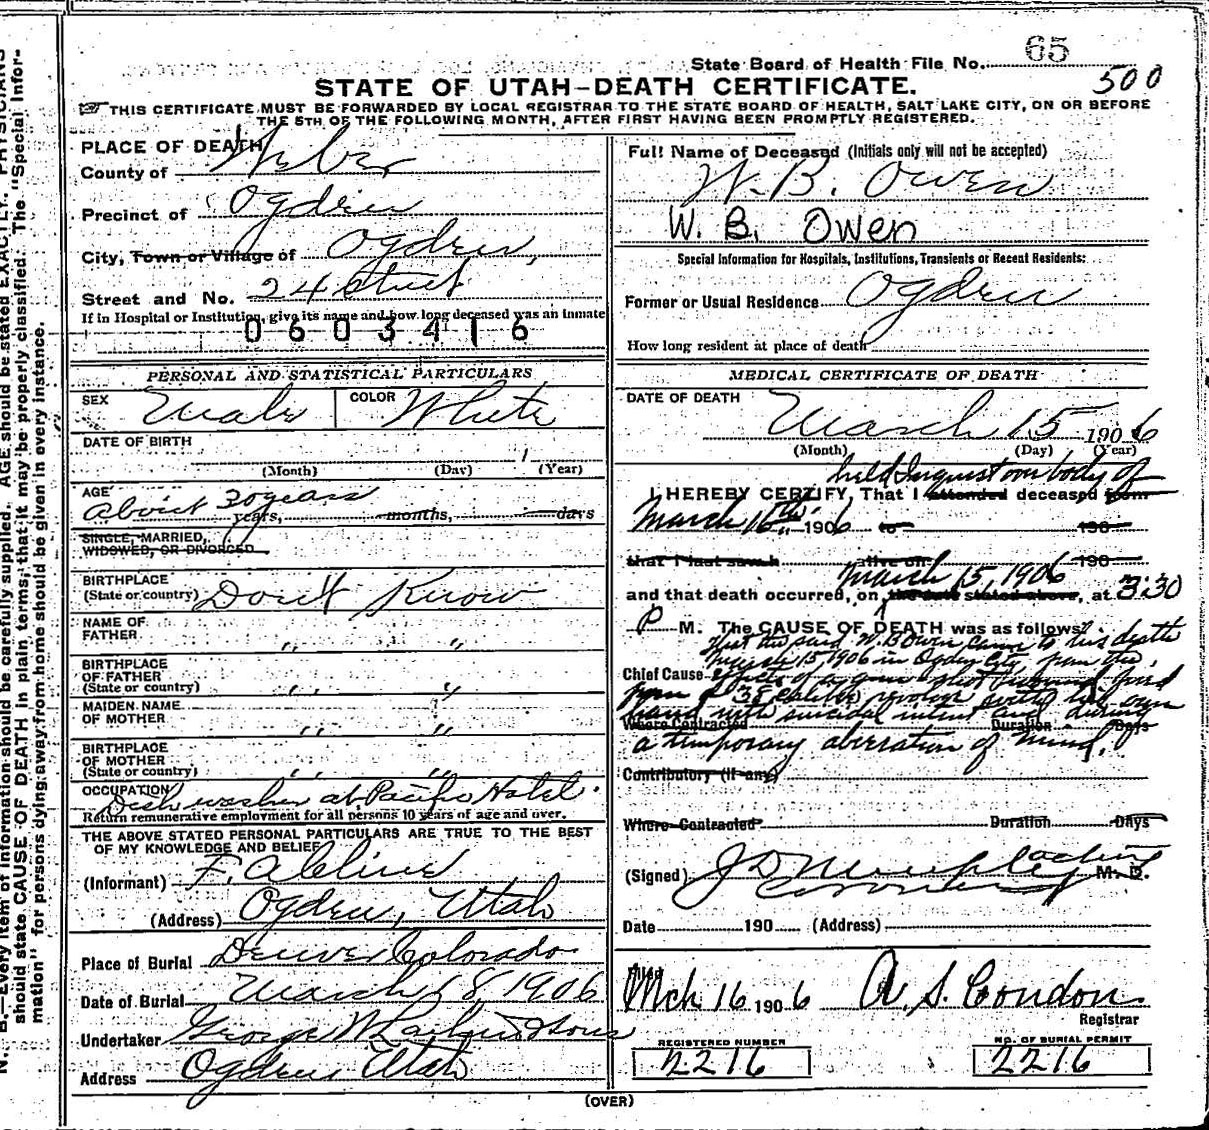 State Board of Health File No. 65
500
STATE OF UTAH—DEATH CERTIFICATE.
THIS CERTIFICATE MUST BE FORWARDED BY LOCAL REGISTRAR TO THE STATE BOARD OF HEALTH, SALT LAKE CITY, ON OR BEFORE
THE 5TH OF THE FOLLOWING MONTH, AFTER FIRST HAVING BEEN PROMPTLY REGISTERED.
PLACE OF DEATH
County of Weber
Precinct of Ogden
City, Town or Village of Ogden,
Street and No. 24 Street
If in Hospital or Institution, give its name and how long deceased was an inmate
0603416
PERSONAL AND STATISTICAL PARTICULARS
SEX Male COLOR White
DATE OF BIRTH
(Month) (Day) (Year)
AGE About 30 years
years, months, days
SINGLE, MARRIED,
WIDOWED, OR DIVORCED
BIRTHPLACE
(State or country) Dont Know
NAME OF
FATHER " "
BIRTHPLACE
OF FATHER
(State or country) " "
MAIDEN NAME
OF MOTHER " "
BIRTHPLACE
OF MOTHER
(State or country) " "
OCCUPATION
Dish washer at Pacific Hotel.
Return remunerative employment for all persons 10 years of age and over.
THE ABOVE STATED PERSONAL PARTICULARS ARE TRUE TO THE BEST
OF MY KNOWLEDGE AND BELIEF
(Informant) F. A.
(Address) Ogden, Utah
Place of Burial Denver Colorado
Date of Burial March 18, 1906
Undertaker George W Larkin & Sons
Address Ogden Utah
Full Name of Deceased (Initials only will not be accepted)
W. B. Owen
W. B. Owen
Special Information for Hospitals, Institutions, Transients or Recent Residents:
Former or Usual Residence Ogden
How long resident at place of death
MEDICAL CERTIFICATE OF DEATH
DATE OF DEATH
March 15 1906
(Month) (Day) (Year)
held Inquest on body of
I HEREBY CERTIFY, That I attended deceased from
March 16th 1906 to 190
that I last saw h alive on 190
March 15, 1906
and that death occurred, on the date stated above, at 3:30
P M. The CAUSE OF DEATH was as follows:
That the said W. B Owen came to his death
March 15, 1906 in Ogden City, from the
Chief Cause effects of a gun shot wound fired
from a 38 caliber revolver with his own
hand with suicidal intent and during
Where Contracted Duration Days
a temporary aberration of mind.
Contributory (if any)
Where Contracted Duration Days
(Signed) J D Murphy acting M. D.
Coroner
Date 190 (Address)
Filed
Mch 16 1906 A. S. Condon
Registrar
REGISTERED NUMBER
2216
NO. OF BURIAL PERMIT
2216
(OVER)
N. B.—Every item of information should be carefully supplied. AGE should be stated EXACTLY. PHYSICIANS
should state CAUSE OF DEATH in plain terms, that it may be properly classified. The "Special Infor-
mation" for persons dying away from home should be given in every instance.